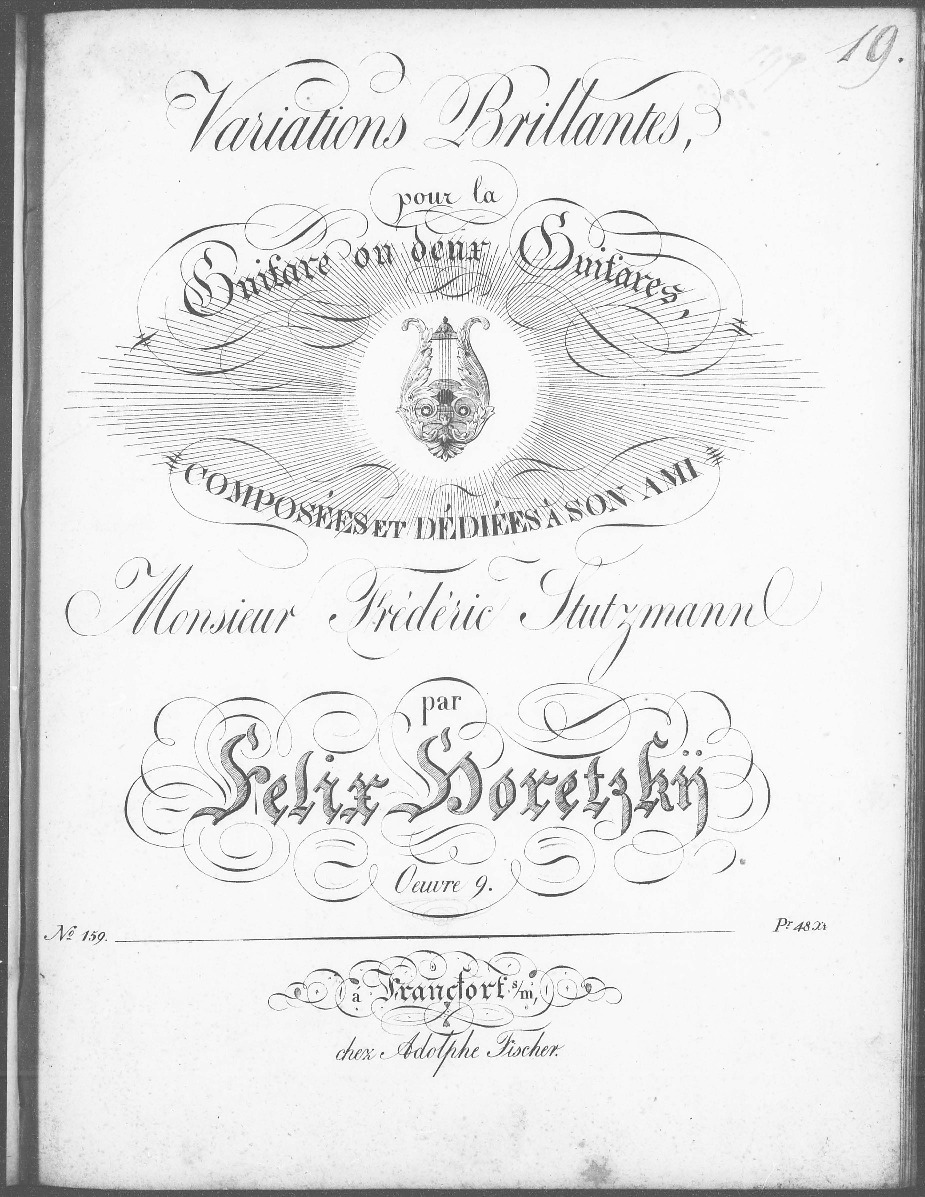 19.
Variations Brillantes,
pour la
Guitare ou deux Guitares,
COMPOSÉES ET DÉDIÉES À SON AMI
Monsieur Frédéric Stutzmann
par
Felix Horetzkÿ
Oeuvre 9.
No. 159.
Pr. 48 Xr
á Francfort s/m,
chez Adolphe Fischer.